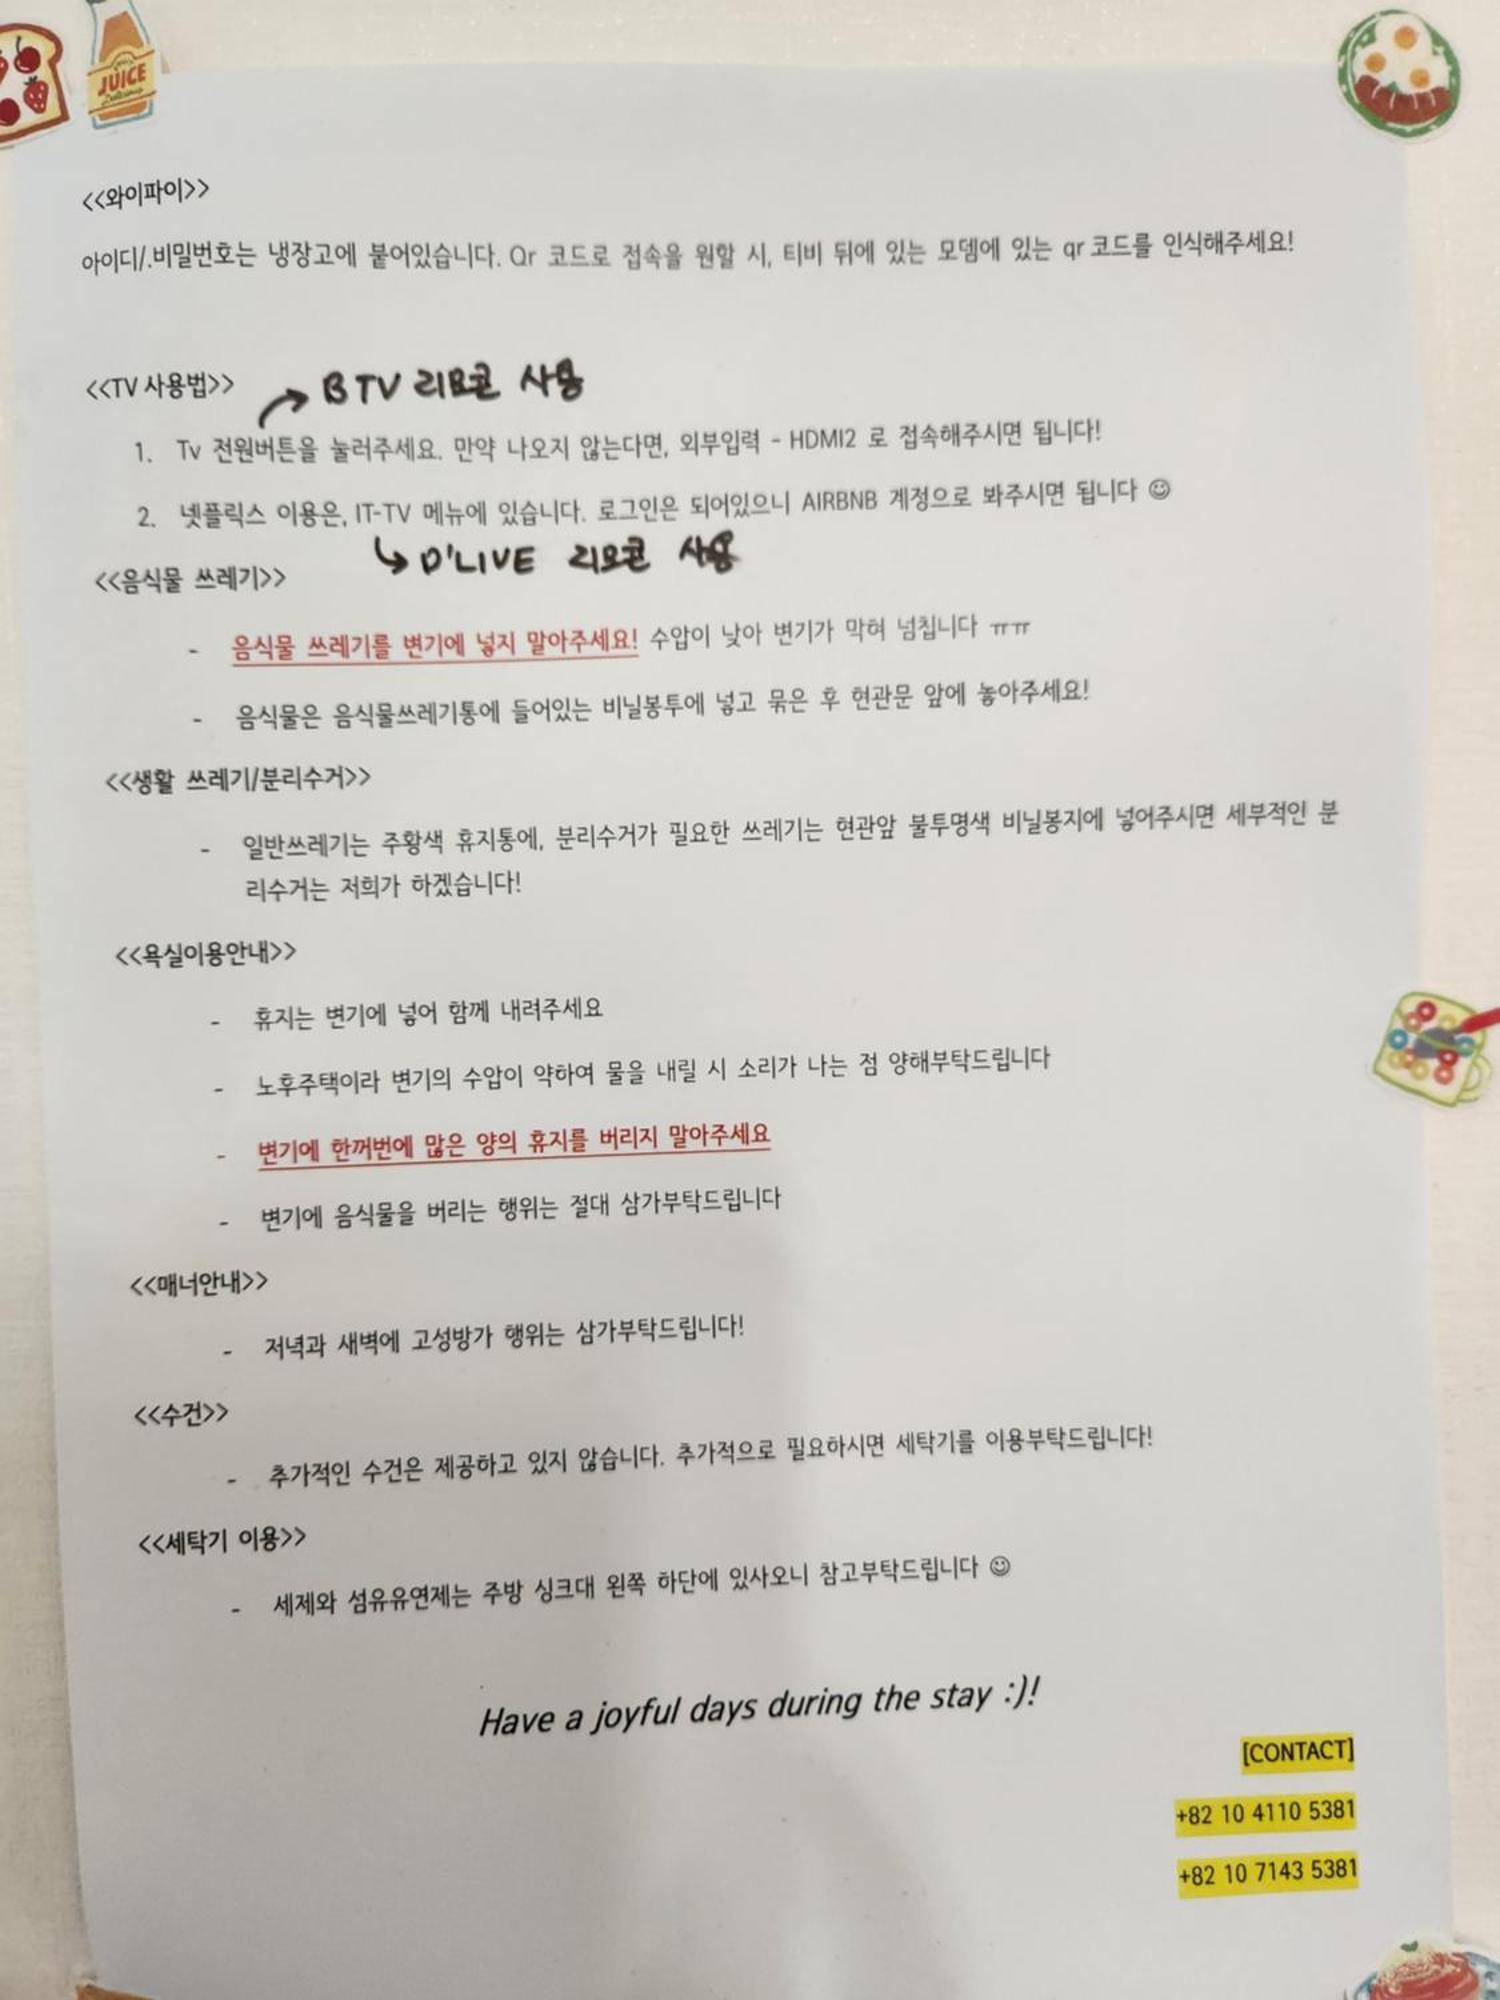 JUICE
Delicious
<<와이파이>>
아이디/.비밀번호는 냉장고에 붙어있습니다. Qr 코드로 접속을 원할 시, 티비 뒤에 있는 모뎀에 있는 qr 코드를 인식해주세요!
<<TV 사용법>>
BTV 리모콘 사용
1. Tv 전원버튼을 눌러주세요. 만약 나오지 않는다면, 외부입력 - HDMI2 로 접속해주시면 됩니다!
2. 넷플릭스 이용은, IT-TV 메뉴에 있습니다. 로그인은 되어있으니 AIRBNB 계정으로 봐주시면 됩니다 ☺
D'LIVE 리모콘 사용
<<음식물 쓰레기>>
- 음식물 쓰레기를 변기에 넣지 말아주세요! 수압이 낮아 변기가 막혀 넘칩니다 ㅠㅠ
- 음식물은 음식물쓰레기통에 들어있는 비닐봉투에 넣고 묶은 후 현관문 앞에 놓아주세요!
<<생활 쓰레기/분리수거>>
- 일반쓰레기는 주황색 휴지통에, 분리수거가 필요한 쓰레기는 현관앞 불투명색 비닐봉지에 넣어주시면 세부적인 분
리수거는 저희가 하겠습니다!
<<욕실이용안내>>
- 휴지는 변기에 넣어 함께 내려주세요
- 노후주택이라 변기의 수압이 약하여 물을 내릴 시 소리가 나는 점 양해부탁드립니다
- 변기에 한꺼번에 많은 양의 휴지를 버리지 말아주세요
- 변기에 음식물을 버리는 행위는 절대 삼가부탁드립니다
<<매너안내>>
- 저녁과 새벽에 고성방가 행위는 삼가부탁드립니다!
<<수건>>
- 추가적인 수건은 제공하고 있지 않습니다. 추가적으로 필요하시면 세탁기를 이용부탁드립니다!
<<세탁기 이용>>
- 세제와 섬유유연제는 주방 싱크대 왼쪽 하단에 있사오니 참고부탁드립니다 ☺
Have a joyful days during the stay :)!
[CONTACT]
+82 10 4110 5381
+82 10 7143 5381